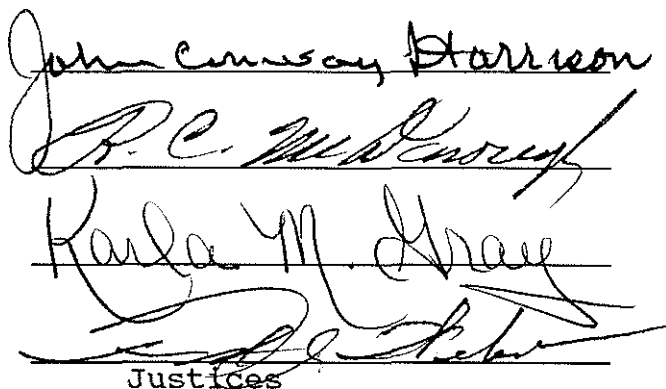 John Conway Harrison
R. C. McDonough
Karla M. Gray
Justices